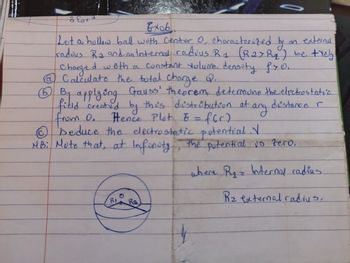 Exo6
Let a hollow ball with Center O, characterized by an external
radius R2 and an internal radius R1 (R2>R1) be
charged with a constant volume density ρ>0.
ⓐ Calculate the total charge Q.
ⓑ By applying Gauss' theorem determine the electrostatic
field created by this distribution at any distance r
from O. Hence Plot E = f(r)
ⓒ Deduce the electrostatic potential V
NB: Note that, at Infinity, the potential is zero.
where R1 = Internal radius
R2 external radius.
O
R1 R2